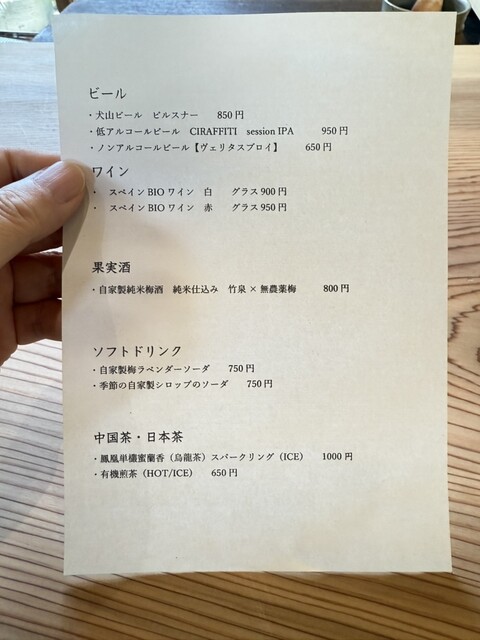 ビール
・犬山ビール　ピルスナー　850 円
・低アルコールビール　CIRAFFITI　session IPA　950 円
・ノンアルコールビール【ヴェリタスブロイ】　650 円
ワイン
・　スペイン BIO ワイン　白　グラス 900 円
・　スペイン BIO ワイン　赤　グラス 950 円
果実酒
・自家製純米梅酒　純米仕込み　竹泉 × 無農薬梅　800 円
ソフトドリンク
・自家製梅ラベンダーソーダ　750 円
・季節の自家製シロップのソーダ　750 円
中国茶・日本茶
・鳳凰単欉蜜蘭香（烏龍茶）スパークリング（ICE）　1000 円
・有機煎茶（HOT/ICE）　650 円